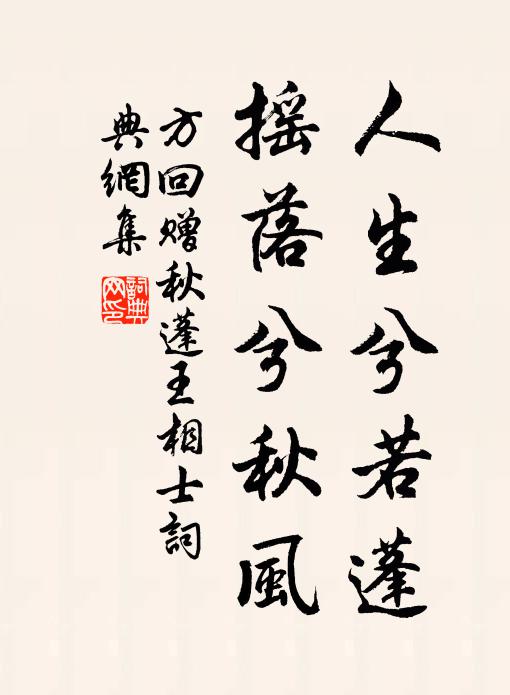 人生兮若蓬
摇落兮秋風
方回贈秋蓬王相士詞
典網集
詞典网印